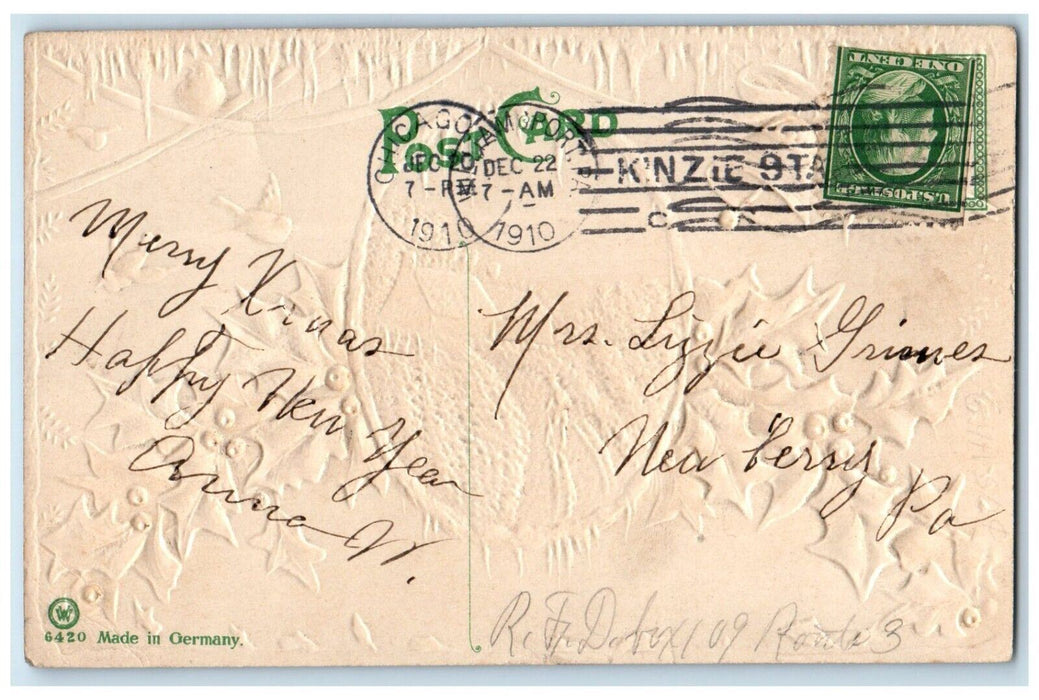 Post Card
CHICAGO
DEC 20
7-PM
1910
WILLIAMSPORT, PA
DEC 22
7-AM
1910
KINZIE STA
ONE CENT
U.S. POSTAGE
Merry Xmas
Happy New Year
Anna W.
Mrs. Lizzie Grimes
New berry
Pa
R.F.D. box 109 Route 3
W
6420 Made in Germany.